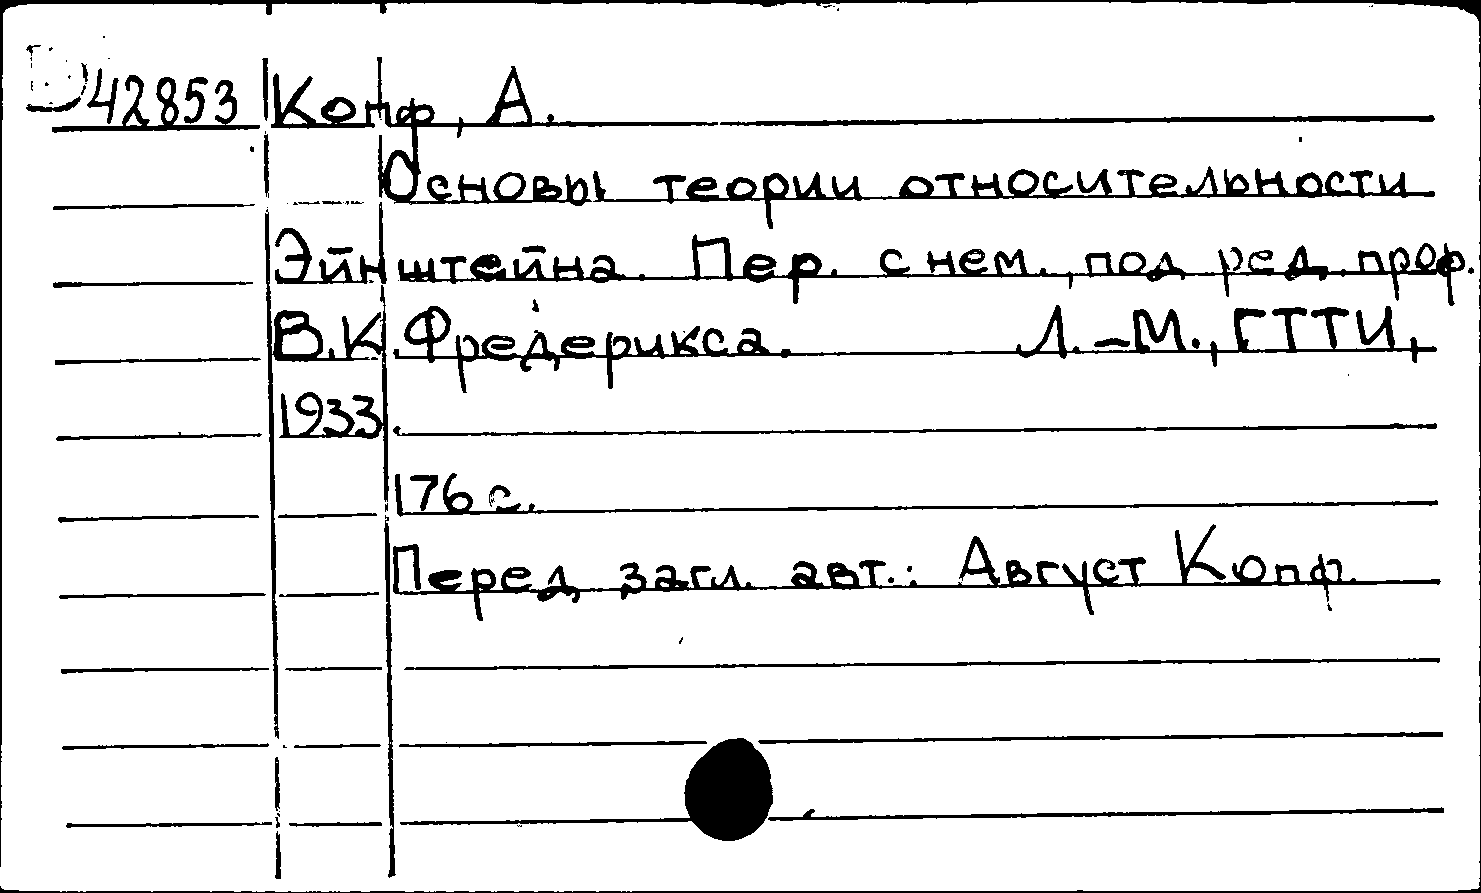 42853 Копф, А.
Основы теории относительности
Эйнштейна. Пер. с нем., под ред. проф.
В.К. Фредерикса. Л.-М., ГТТИ,
1933.
176 с.
Перед загл. авт.: Август Копф